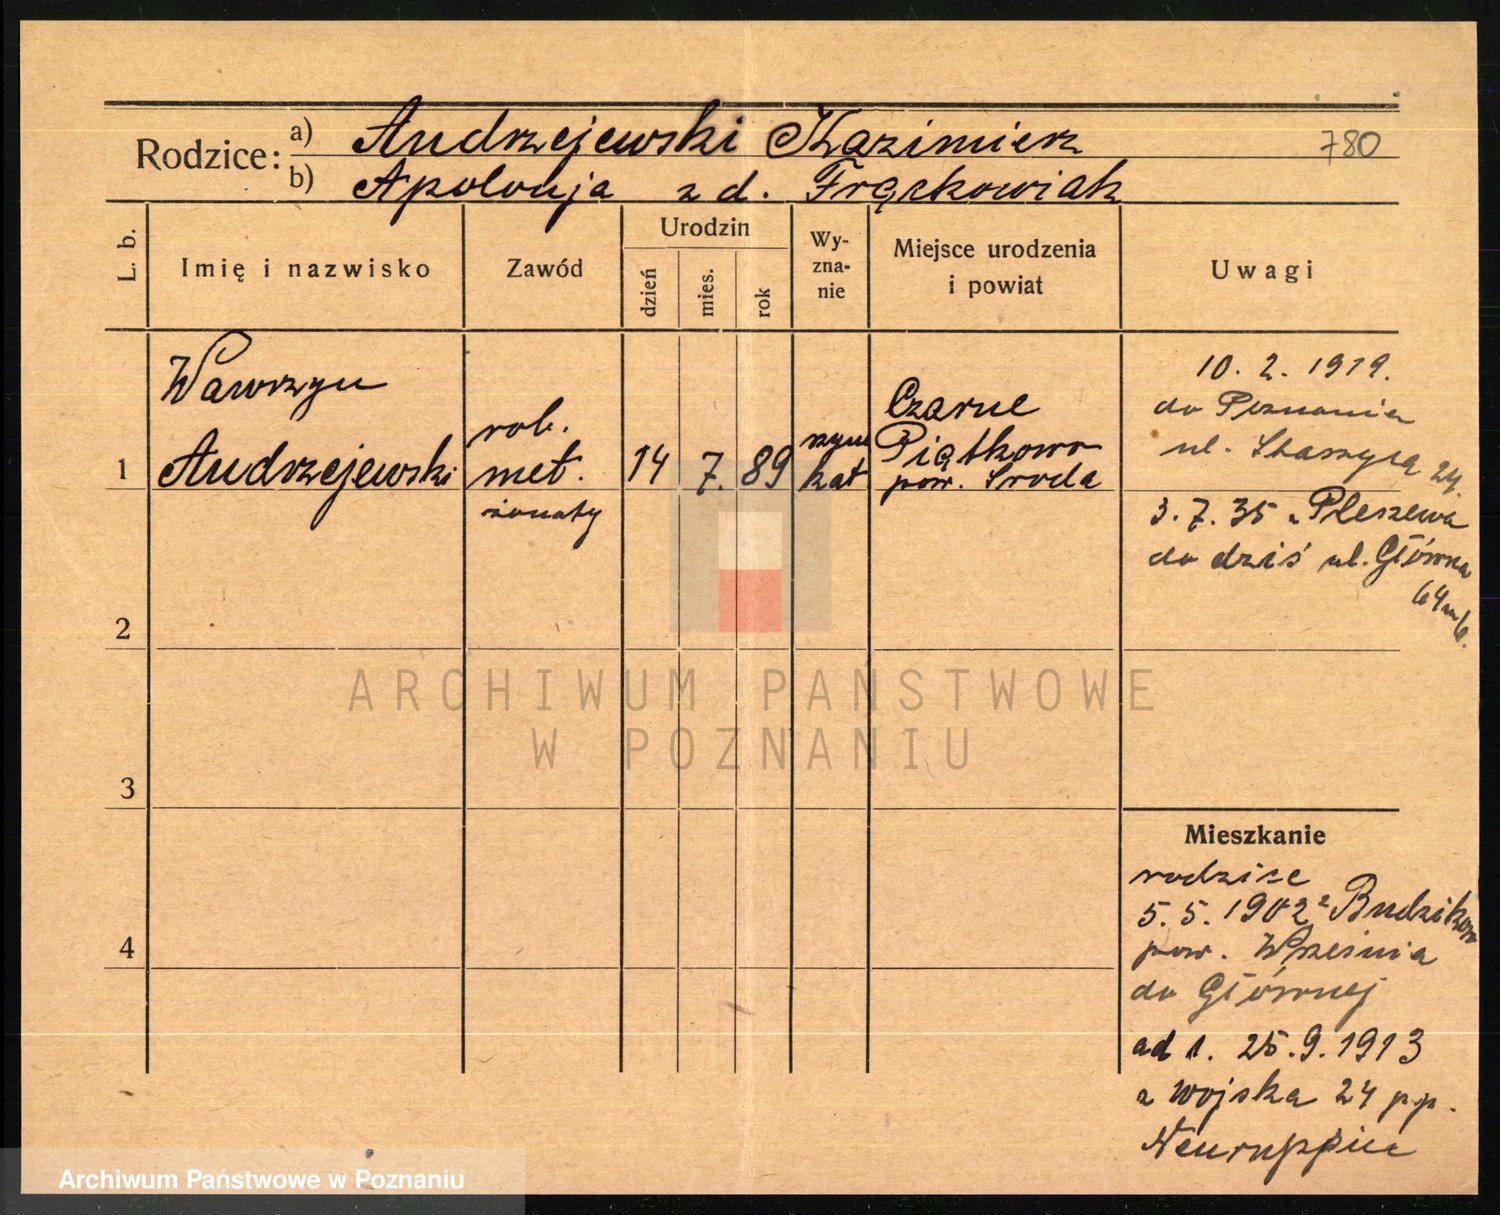 Rodzice: a) Andrzejewski Kazimierz
780
b) Apolonja z d. Frąckowiak
L. b.
Imię i nazwisko
Zawód
Urodzin
dzień
mies.
rok
Wy-
zna-
nie
Miejsce urodzenia
i powiat
Uwagi
1
Wawrzyn
Andrzejewski
rob.
met.
żonaty
14
7.
89
rzym
kat
Czarne
Piątkowo
pow. Środa
10. 2. 1919.
do Poznania
ul. Staszyca 24.
3. 7. 35 z Pleszewa
do dziś ul. Główna
64 m 6.
2
3
4
Mieszkanie
rodzice
5. 5. 1902 z Budzikowo
pow. Września
do Głównej
ad 1. 25. 9. 1913
z wojska 24 p.p.
Neuruppin
ARCHIWUM PAŃSTWOWE
W POZNANIU
Archiwum Państwowe w Poznaniu